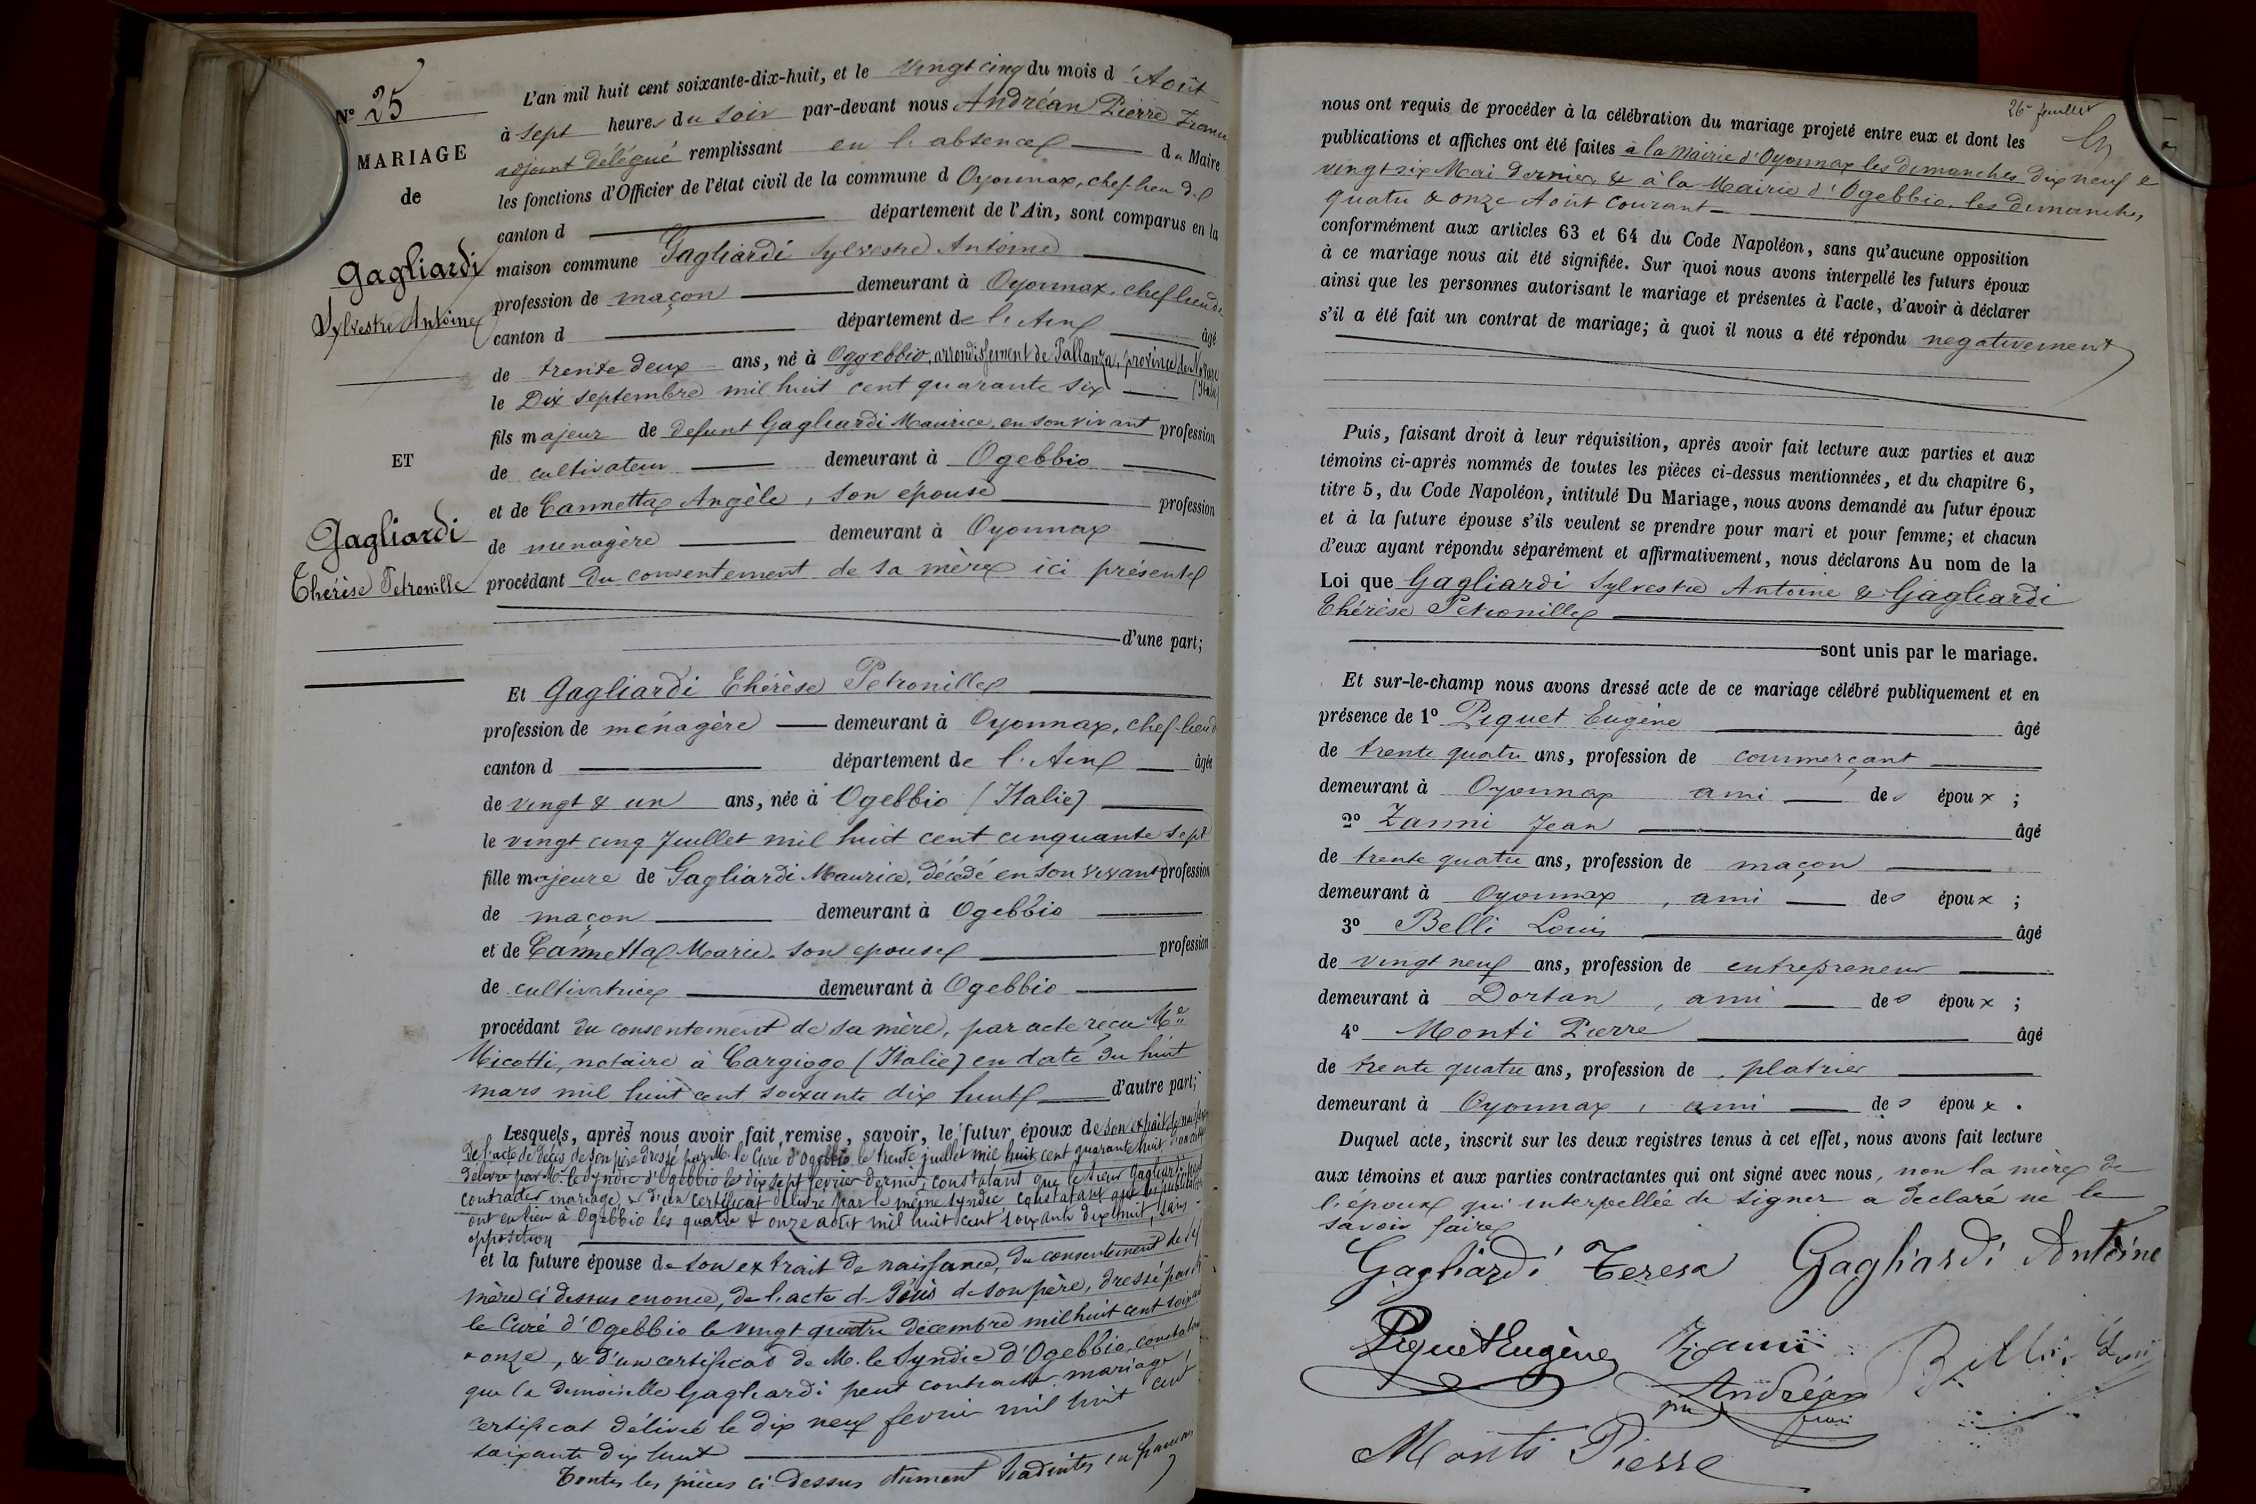 N° 25
MARIAGE
de
Gagliardi
Sylvestre Antoine
ET
Gagliardi
Thérèse Petronille
L'an mil huit cent soixante-dix-huit, et le vingt cinq du mois d'Août
à sept heures du soir par-devant nous Andréan Pierre
adjoint délégué remplissant en l'absence du Maire
les fonctions d'Officier de l'état civil de la commune d'Oyonnax, chef-lieu de
canton d département de l'Ain, sont comparus en la
maison commune Gagliardi Sylvestre Antoine
profession de maçon demeurant à Oyonnax, chef lieu de
canton d département de l'Ain âgé
de trente deux ans, né à Oggebbio, arrondissement de Pallanza, province de Novare (Italie)
le Dix septembre mil huit cent quarante six
fils majeur de defunt Gagliardi Maurice, en son vivant profession
de cultivateur demeurant à Ogebbio
et de Cannetta Angèle, son épouse profession
de menagère demeurant à Oyonnax
procédant du consentement de sa mère ici présente
d'une part;
Et Gagliardi Thérèse Petronille
profession de ménagère demeurant à Oyonnax, chef-lieu d
canton d département de l'Ain âgée
de vingt & un ans, née à Ogebbio (Italie)
le vingt cinq Juillet mil huit cent cinquante sept
fille majeure de Gagliardi Maurice, décédé en son vivant profession
de maçon demeurant à Ogebbio
et de Cannetta Marie, son epouse profession
de cultivatrice demeurant à Ogebbio
procédant du consentement de sa mère, par acte reçu Me
Micotti, notaire à Cargiogo (Italie) en date du huit
mars mil huit cent soixante dix huit d'autre part;
Lesquels, après nous avoir fait remise, savoir, le futur époux de son extrait de naissance
De l'acte de décès de son père dressé par Mr le Curé d'Ogebbio le trente juillet mil huit cent quarante huit
délivré par Mr. le Syndic d'Ogebbio le dix sept fevrier dernier, constatant que le sieur Gagliardi peut
contracter mariage, & d'un certificat délivré par le même syndic constatant que les publications
ont eu lieu à Ogebbio les quatre & onze août mil huit cent soixante dix huit, sans
opposition
et la future épouse de son extrait de naissance, du consentement de sa
mère ci dessus enoncé, de l'acte de décès de son père, dressé par Mr
le Curé d'Ogebbio le vingt quatre décembre mil huit cent soixante
& onze, & d'un certificat de M. le Syndic d'Ogebbio, constatant
que la demoiselle Gagliardi peut contracter mariage,
certificat délivré le dix neuf fevrier mil huit cent
soixante dix huit
Toutes les pièces ci dessus dûment traduites en français
26e feuillet
nous ont requis de procéder à la célébration du mariage projeté entre eux et dont les
publications et affiches ont été faites à la Mairie d'Oyonnax les dimanches dix neuf &
vingt six Mai dernier & à la Mairie d'Ogebbio, les dimanches
quatre & onze Août courant
conformément aux articles 63 et 64 du Code Napoléon, sans qu'aucune opposition
à ce mariage nous ait été signifiée. Sur quoi nous avons interpellé les futurs époux
ainsi que les personnes autorisant le mariage et présentes à l'acte, d'avoir à déclarer
s'il a été fait un contrat de mariage; à quoi il nous a été répondu negativement
Puis, faisant droit à leur réquisition, après avoir fait lecture aux parties et aux
témoins ci-après nommés de toutes les pièces ci-dessus mentionnées, et du chapitre 6,
titre 5, du Code Napoléon, intitulé Du Mariage, nous avons demandé au futur époux
et à la future épouse s'ils veulent se prendre pour mari et pour femme; et chacun
d'eux ayant répondu séparément et affirmativement, nous déclarons Au nom de la
Loi que Gagliardi Sylvestre Antoine & Gagliardi
Thérèse Petronille
sont unis par le mariage.
Et sur-le-champ nous avons dressé acte de ce mariage célébré publiquement et en
présence de 1° Piquet Eugène âgé
de trente quatre ans, profession de commerçant
demeurant à Oyonnax ami des époux;
2° Zanni Jean âgé
de trente quatre ans, profession de maçon
demeurant à Oyonnax, ami des époux;
3° Belli Louis âgé
de vingt neuf ans, profession de entrepreneur
demeurant à Dortan, ami des époux;
4° Monti Pierre âgé
de trente quatre ans, profession de platrier
demeurant à Oyonnax, ami des époux.
Duquel acte, inscrit sur les deux registres tenus à cet effet, nous avons fait lecture
aux témoins et aux parties contractantes qui ont signé avec nous, non la mère de
l'époux qui interpellée de signer a declaré ne le
savoir faire
Gagliardi Teresa Gagliardi Antoine
Piquet Eugène Zanni Belli Louis
Andréan
Monti Pierre